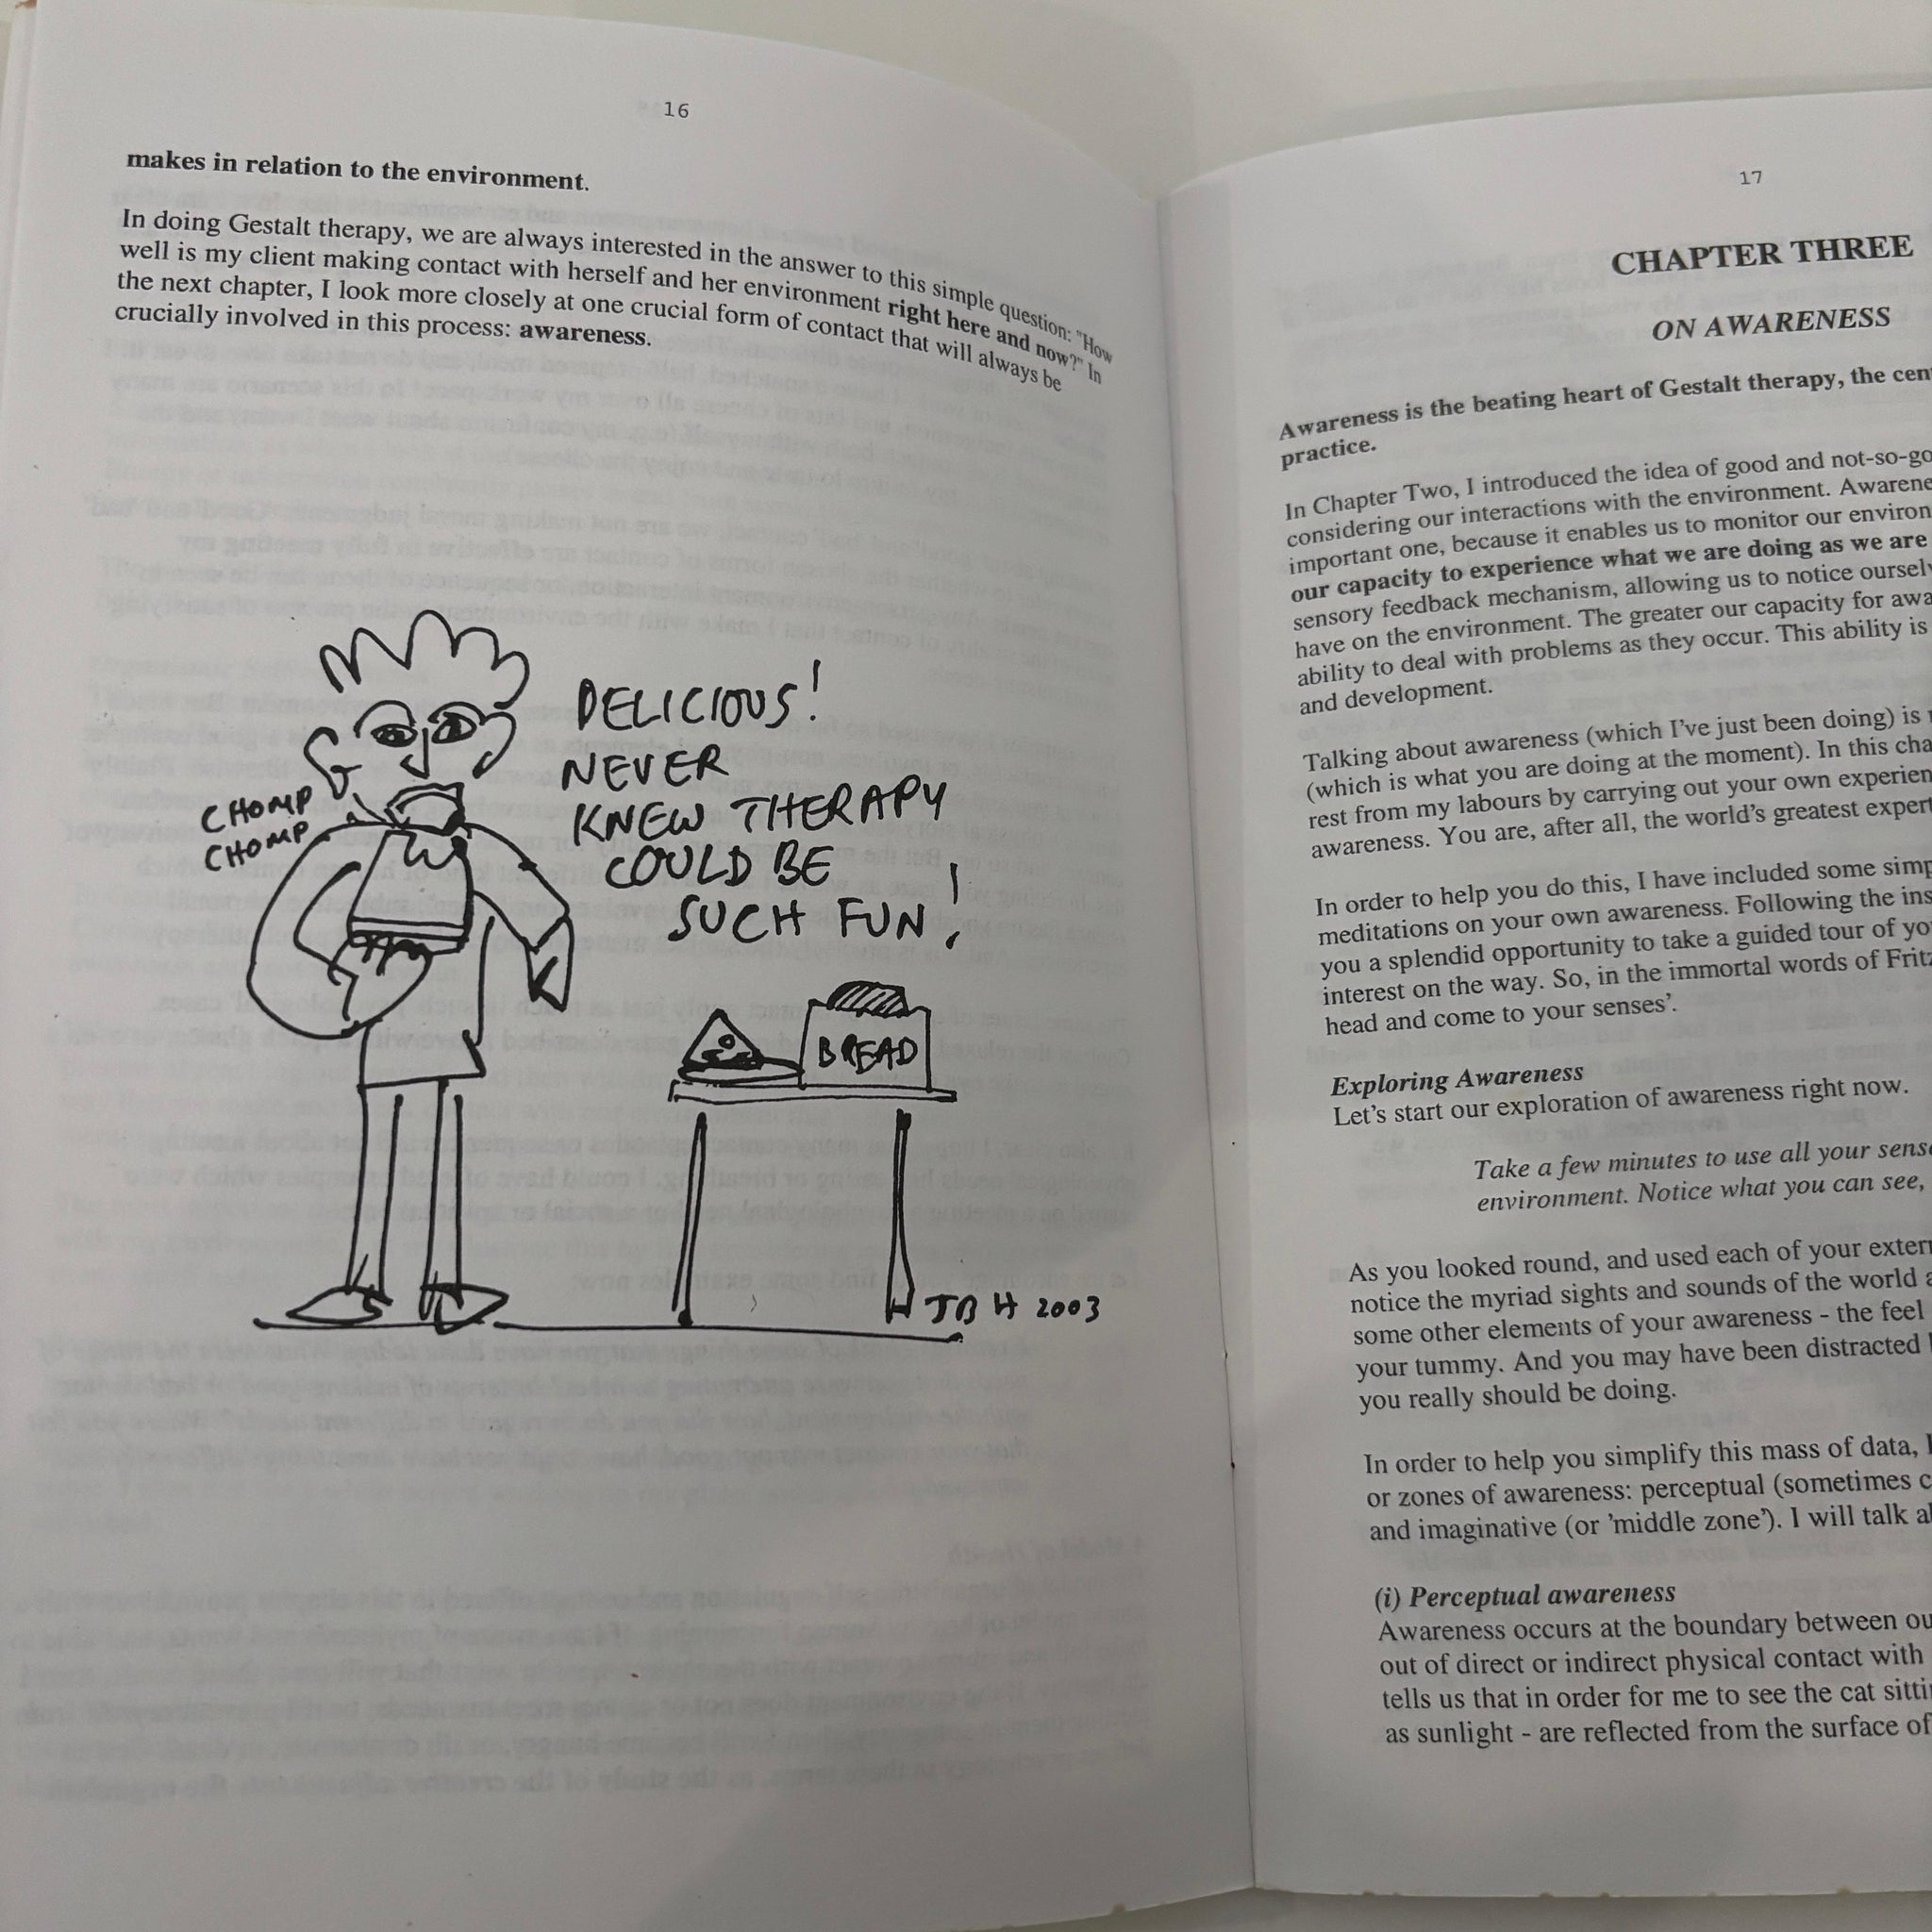 16
makes in relation to the environment.
In doing Gestalt therapy, we are always interested in the answer to this simple question: "How
well is my client making contact with herself and her environment right here and now?" In
the next chapter, I look more closely at one crucial form of contact that will always be
crucially involved in this process: awareness.
DELICIOUS!
NEVER
KNEW THERAPY
COULD BE
SUCH FUN!
CHOMP
CHOMP
BREAD
JBH 2003
17
CHAPTER THREE
ON AWARENESS
Awareness is the beating heart of Gestalt therapy, the cen
practice.
In Chapter Two, I introduced the idea of good and not-so-go
considering our interactions with the environment. Awarene
important one, because it enables us to monitor our environ
our capacity to experience what we are doing as we are
sensory feedback mechanism, allowing us to notice oursel
have on the environment. The greater our capacity for awa
ability to deal with problems as they occur. This ability is
and development.
Talking about awareness (which I've just been doing) is
(which is what you are doing at the moment). In this cha
rest from my labours by carrying out your own experien
awareness. You are, after all, the world's greatest expert
In order to help you do this, I have included some simp
meditations on your own awareness. Following the ins
you a splendid opportunity to take a guided tour of yo
interest on the way. So, in the immortal words of Fritz
head and come to your senses'.
Exploring Awareness
Let's start our exploration of awareness right now.
Take a few minutes to use all your sens
environment. Notice what you can see,
As you looked round, and used each of your extern
notice the myriad sights and sounds of the world a
some other elements of your awareness - the feel
your tummy. And you may have been distracted
you really should be doing.
In order to help you simplify this mass of data, I
or zones of awareness: perceptual (sometimes c
and imaginative (or 'middle zone'). I will talk a
(i) Perceptual awareness
Awareness occurs at the boundary between ou
out of direct or indirect physical contact with
tells us that in order for me to see the cat sitti
as sunlight - are reflected from the surface of